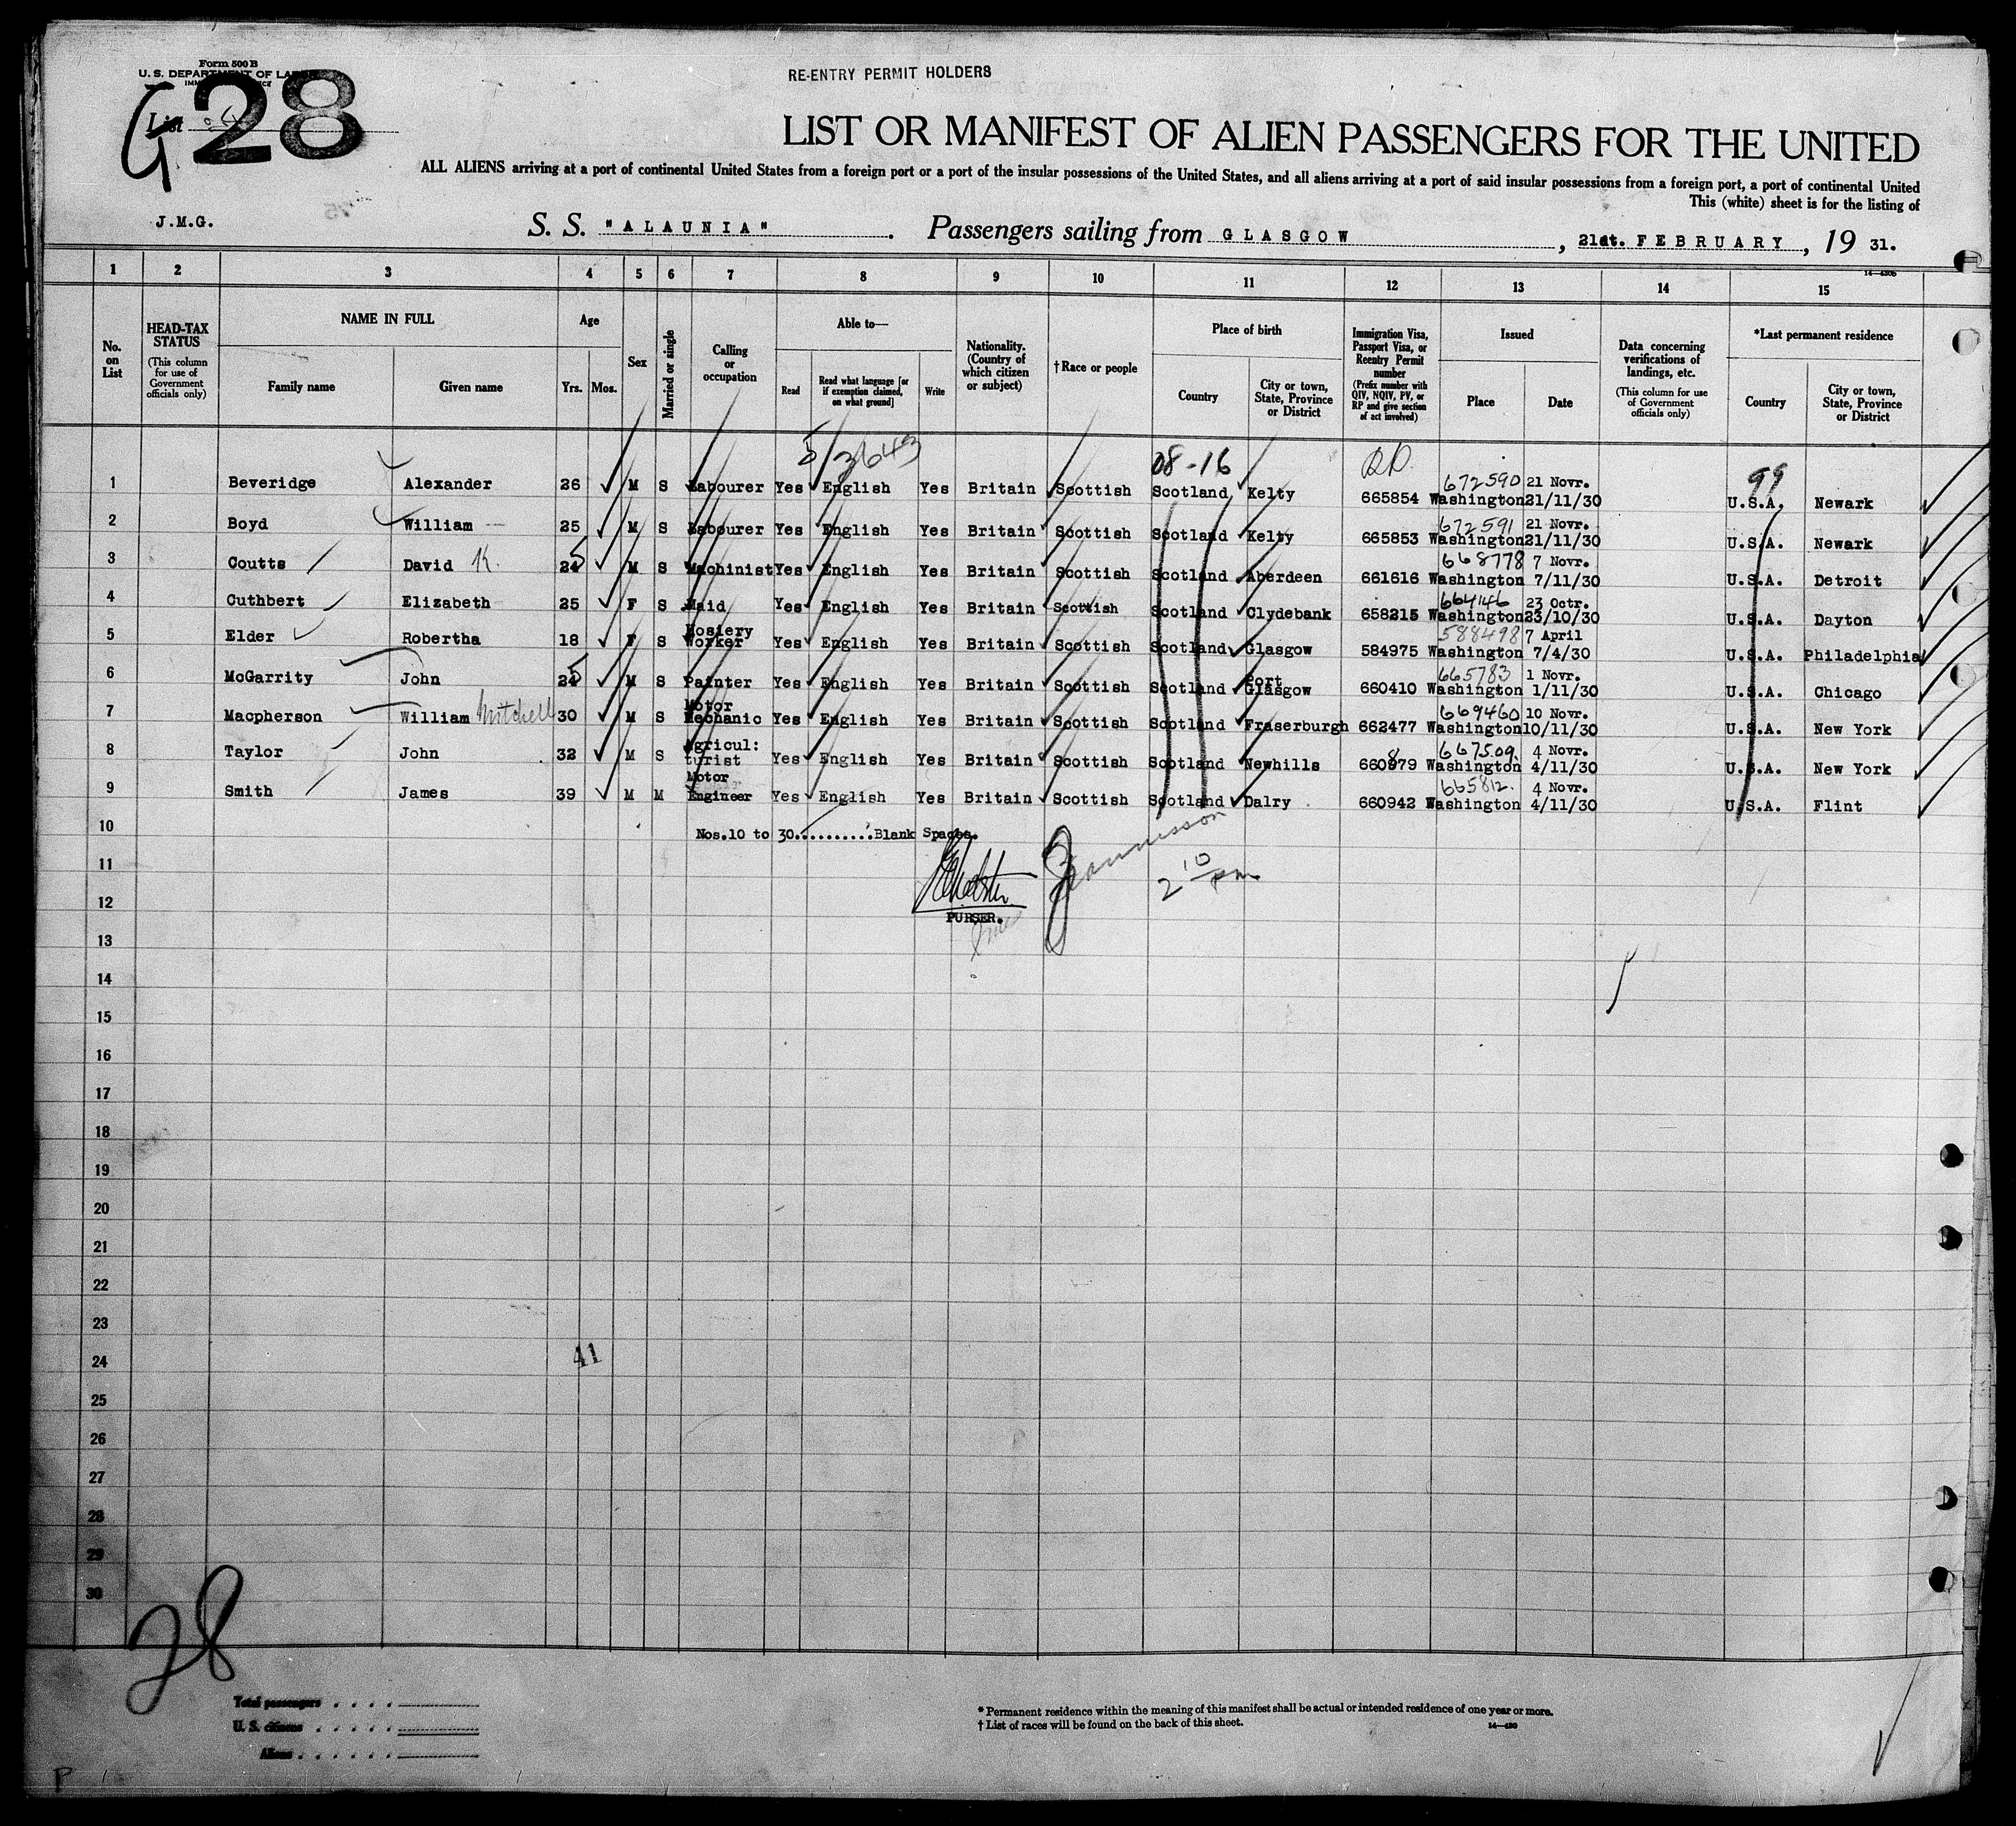 Form 500 B
U. S. DEPARTMENT OF LABOR
RE-ENTRY PERMIT HOLDERS
G 28
List
LIST OR MANIFEST OF ALIEN PASSENGERS FOR THE UNITED
ALL ALIENS arriving at a port of continental United States from a foreign port or a port of the insular possessions of the United States, and all aliens arriving at a port of said insular possessions from a foreign port, a port of continental United
This (white) sheet is for the listing of
J.M.G.
S. S. "ALAUNIA". Passengers sailing from GLASGOW, 21st. FEBRUARY, 19 31.
14—430b
1 2 3 4 5 6 7 8 9 10 11 12 13 14 15
No. on List
HEAD-TAX STATUS (This column for use of Government officials only)
NAME IN FULL
Family name Given name
Age
Yrs. Mos.
Sex
Married or single
Calling or occupation
Able to—
Read Read what language [or if exemption claimed, on what ground] Write
Nationality. (Country of which citizen or subject)
†Race or people
Place of birth
Country City or town, State, Province or District
Immigration Visa, Passport Visa, or Reentry Permit number (Prefix number with QIV, NQIV, PV, or RP and give section of act involved)
Issued
Place Date
Data concerning verifications of landings, etc. (This column for use of Government officials only)
*Last permanent residence
Country City or town, State, Province or District
5/3643 08-16 99
1 Beveridge Alexander 26 M S Labourer Yes English Yes Britain Scottish Scotland Kelty 665854 672590 Washington 21 Novr. 21/11/30 U.S.A. Newark
2 Boyd William 25 M S Labourer Yes English Yes Britain Scottish Scotland Kelty 665853 672591 Washington 21 Novr. 21/11/30 U.S.A. Newark
3 Coutts David K. 24 5 M S Machinist Yes English Yes Britain Scottish Scotland Aberdeen 661616 668778 Washington 7 Novr. 7/11/30 U.S.A. Detroit
4 Cuthbert Elizabeth 25 F S Maid Yes English Yes Britain Scottish Scotland Clydebank 658215 664146 Washington 23 Octr. 23/10/30 U.S.A. Dayton
5 Elder Robertha 18 F S Hosiery Worker Yes English Yes Britain Scottish Scotland Glasgow 584975 588498 Washington 7 April 7/4/30 U.S.A. Philadelphia
6 McGarrity John 24 5 M S Painter Yes English Yes Britain Scottish Scotland Port Glasgow 660410 665783 Washington 1 Novr. 1/11/30 U.S.A. Chicago
7 Macpherson William Mitchell 30 M S Motor Mechanic Yes English Yes Britain Scottish Scotland Fraserburgh 662477 669460 Washington 10 Novr. 10/11/30 U.S.A. New York
8 Taylor John 32 M S Agricul: turist Yes English Yes Britain Scottish Scotland Newhills 660979 8 667509 Washington 4 Novr. 4/11/30 U.S.A. New York
9 Smith James 39 M M Motor Engineer Yes English Yes Britain Scottish Scotland Dalry 660942 665812. Washington 4 Novr. 4/11/30 U.S.A. Flint
10 Nos.10 to 30..........Blank Spaces.
11 2 10 pm
12 PURSER.
13
14
15
16
17
18
19
20
21
22
23
24 41
25
26
27
28
29
30
28
Total passengers
U. S. citizens
Aliens
* Permanent residence within the meaning of this manifest shall be actual or intended residence of one year or more.
† List of races will be found on the back of this sheet.
14—430
P